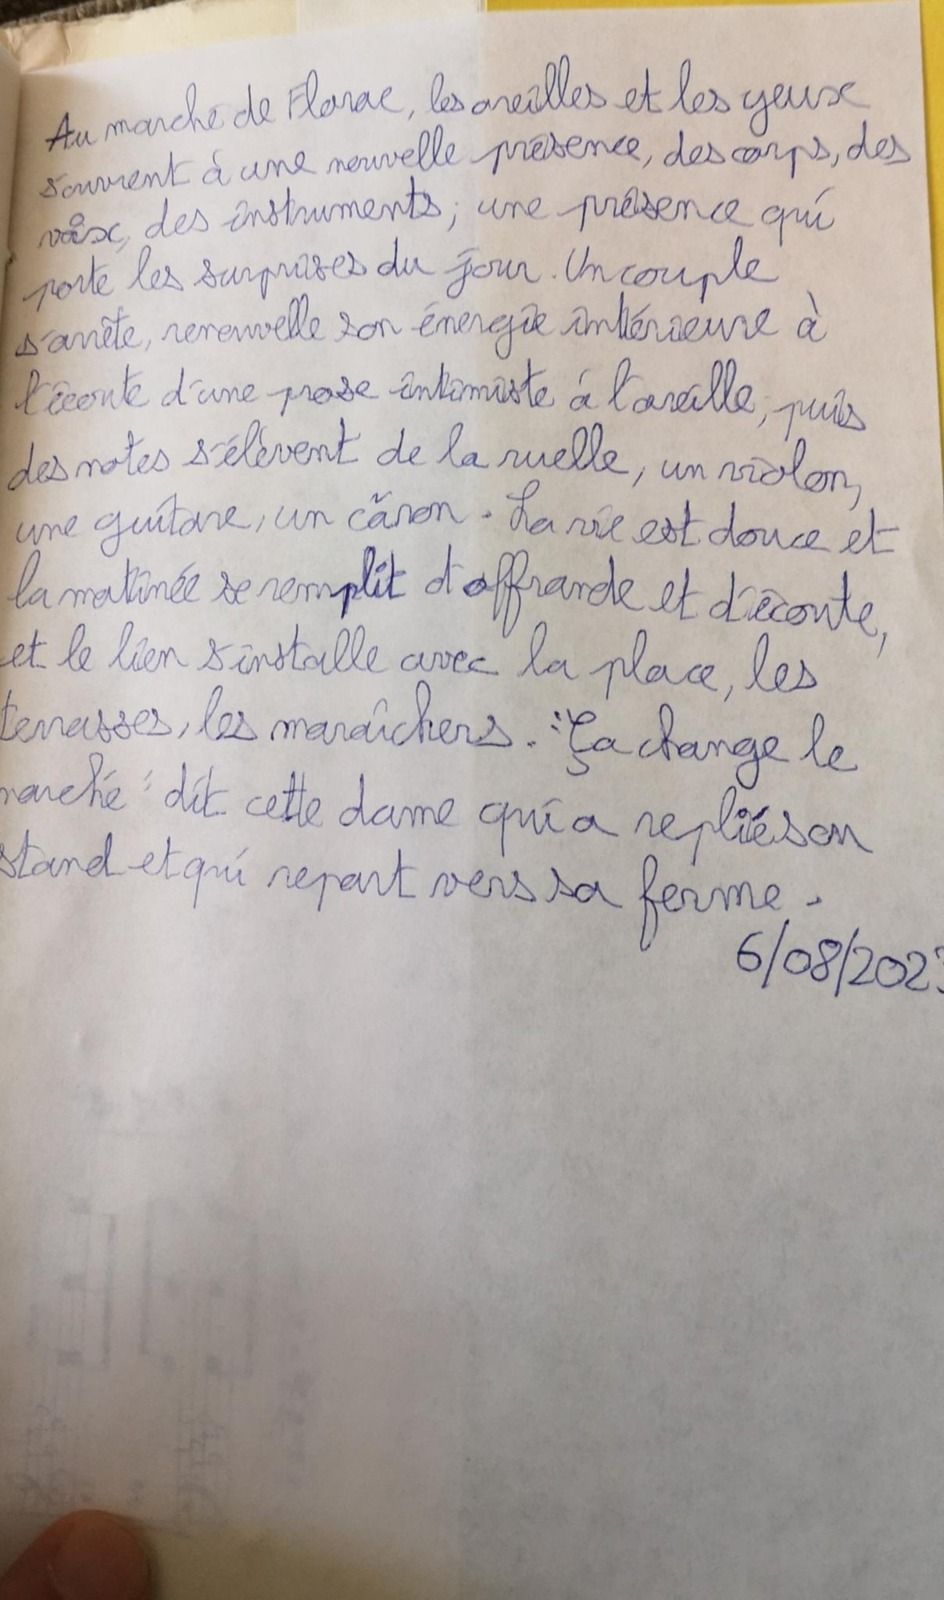 Au marché de Florac, les oreilles et les yeux
s'ouvrent à une nouvelle présence, des corps, des
voix, des instruments; une présence qui
porte les surprises du jour. Un couple
s'arrête, renouvelle son énergie intérieure à
l'écoute d'une prose intimiste à l'oreille, puis
des notes s'élèvent de la ruelle, un violon,
une guitare, un cãron. La vie est douce et
la matinée se remplit d'offrande et d'écoute,
et le lien s'installe avec la place, les
terrasses, les maraîchers. "Ça change le
marché" dit cette dame qui a replié son
stand et qui repart vers sa ferme.
6/08/2023